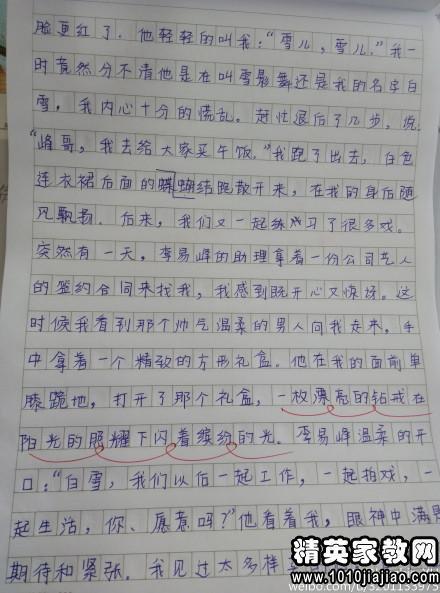 脸更红了。他轻轻的叫我:“雪儿,雪儿。”我一
时竟然分不清他是在叫雪影舞还是我的名字白
雪。我内心十分的慌乱。赶忙退后了几步,说
“峰哥,我去给大家买午饭。”我跑了出去,白色
连衣裙后面的蝴蝶结跑散开来,在我的身后随
风飘扬。后来,我们又一起练习了很多戏。
突然有一天,李易峰的助理拿着一份公司艺人
的签约合同来找我,我感到既开心又惊讶。这
时候我看到那个帅气温柔的男人向我走来,手
中拿着一个精致的方形礼盒。他在我的面前单
膝跪地,打开了那个礼盒,一枚漂亮的钻戒在
阳光的照耀下闪着缤纷的光。李易峰温柔的开
口:“白雪,我们以后一起工作,一起拍戏,一
起生活,你、愿意吗?”他看着我,眼神中满是
期待和紧张。我见过太多样
精英家教网
www.1010jiajiao.com